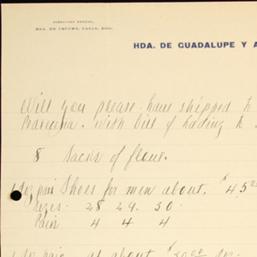 DIRECCION POSTAL,
HDA. DE
HDA. DE GUADALUPE Y A
Will you please have shipped to
with bill of lading to
8 Sacks of flour.
pair Shoes for men about, $ 45
Sizes - 28 29. 30.
Pair 4 4 4
pair at about $